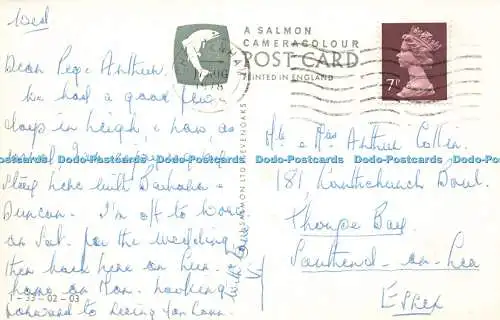 Wed
Dear Peg & Arthur.
We had a good few
days in Leigh & now as
usual I'm
stay here with Barbara &
Duncan. I'm off to
on Sat. for the wedding
then back here on Sun.
home on Mon. Looking
forward to seeing you
with love
A SALMON
CAMERACOLOUR
POST CARD
PRINTED IN ENGLAND
AUG
1978
7P
SALMON LTD SEVENOAKS
1-33-02-03
Mr & Mrs Arthur
181,
Thorpe Bay
Southend-on-Sea
Essex
Dodo-Postcards Dodo-Postcards Dodo-Postcards Dodo-Postcards Dodo-Postcards Dodo-Postcards Dodo-Postcards